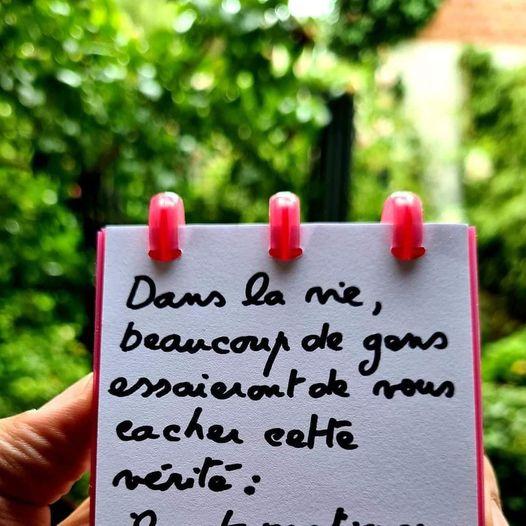 Dans la vie,
beaucoup de gens
essaieront de vous
cacher cette
vérité :